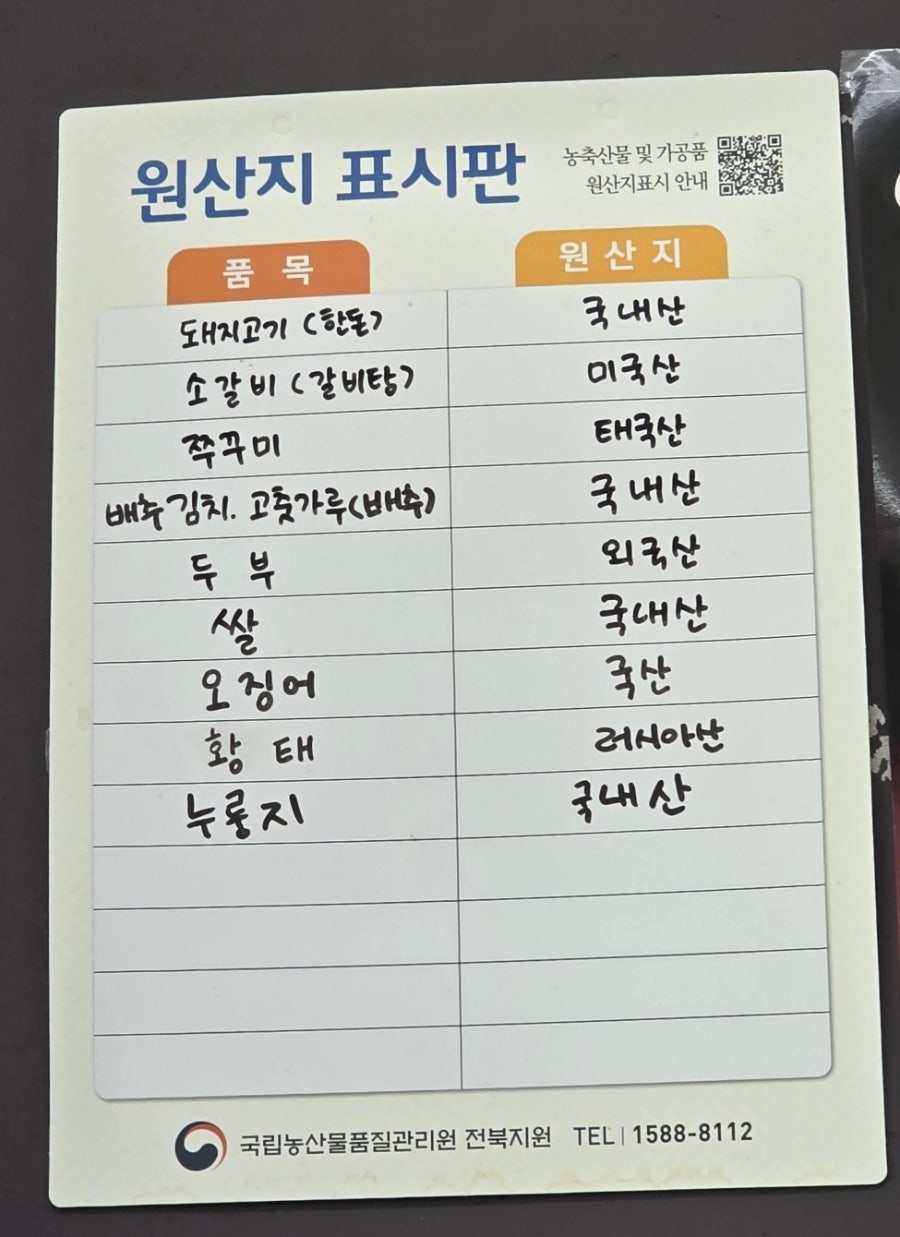 원산지 표시판
농축산물 및 가공품
원산지표시 안내
품 목 원 산 지
돼지고기 (한돈) 국내산
소갈비 (갈비탕) 미국산
쭈꾸미 태국산
배추김치. 고춧가루(배추) 국내산
두 부 외국산
쌀 국내산
오징어 국산
황 태 러시아산
누룽지 국내산
국립농산물품질관리원 전북지원 TEL | 1588-8112